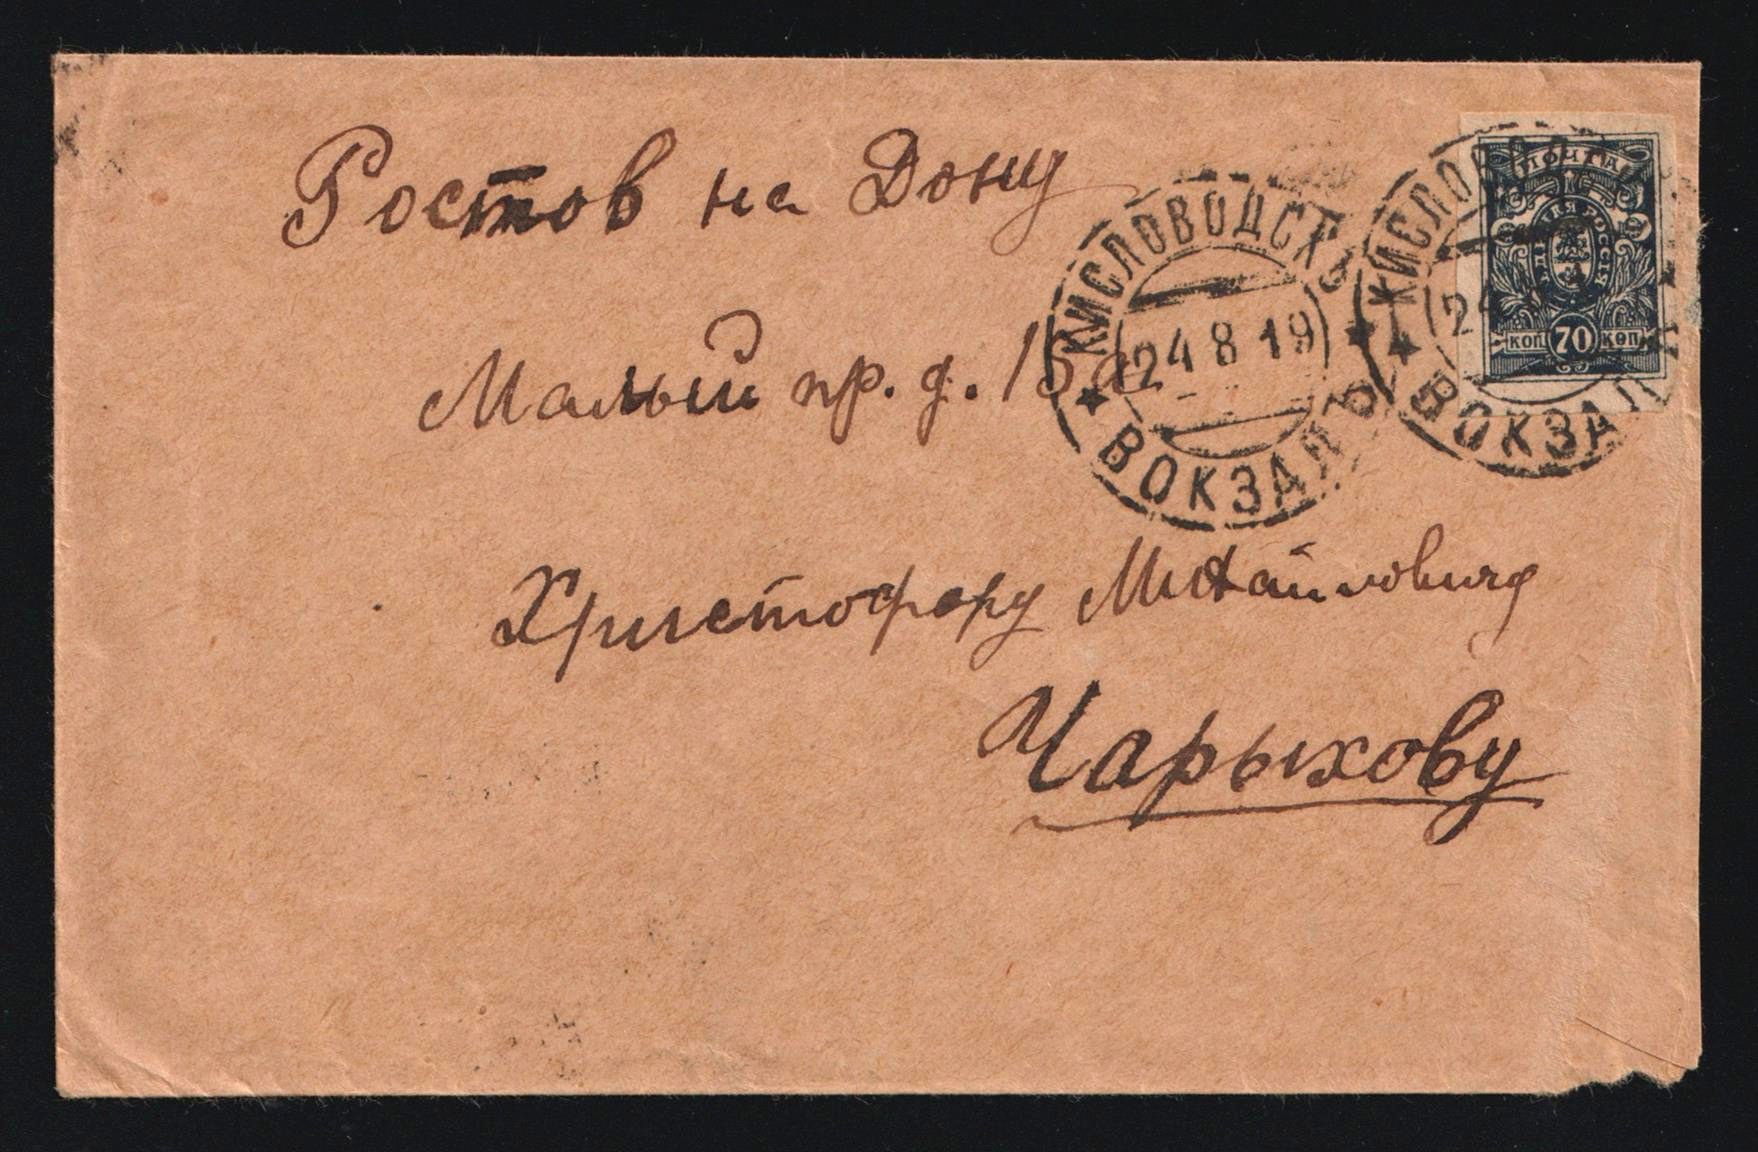 Ростов на Дону
Малый пр. д. 15а
Христофору Михайловичу
Чарыхову
КИСЛОВОДСКЪ
24 8 19
ВОКЗАЛЪ
КИСЛОВОД
24
ВОКЗАЛ
ПОЧТА
ЕДИНАЯ РОССІЯ
КОП 70 КОП